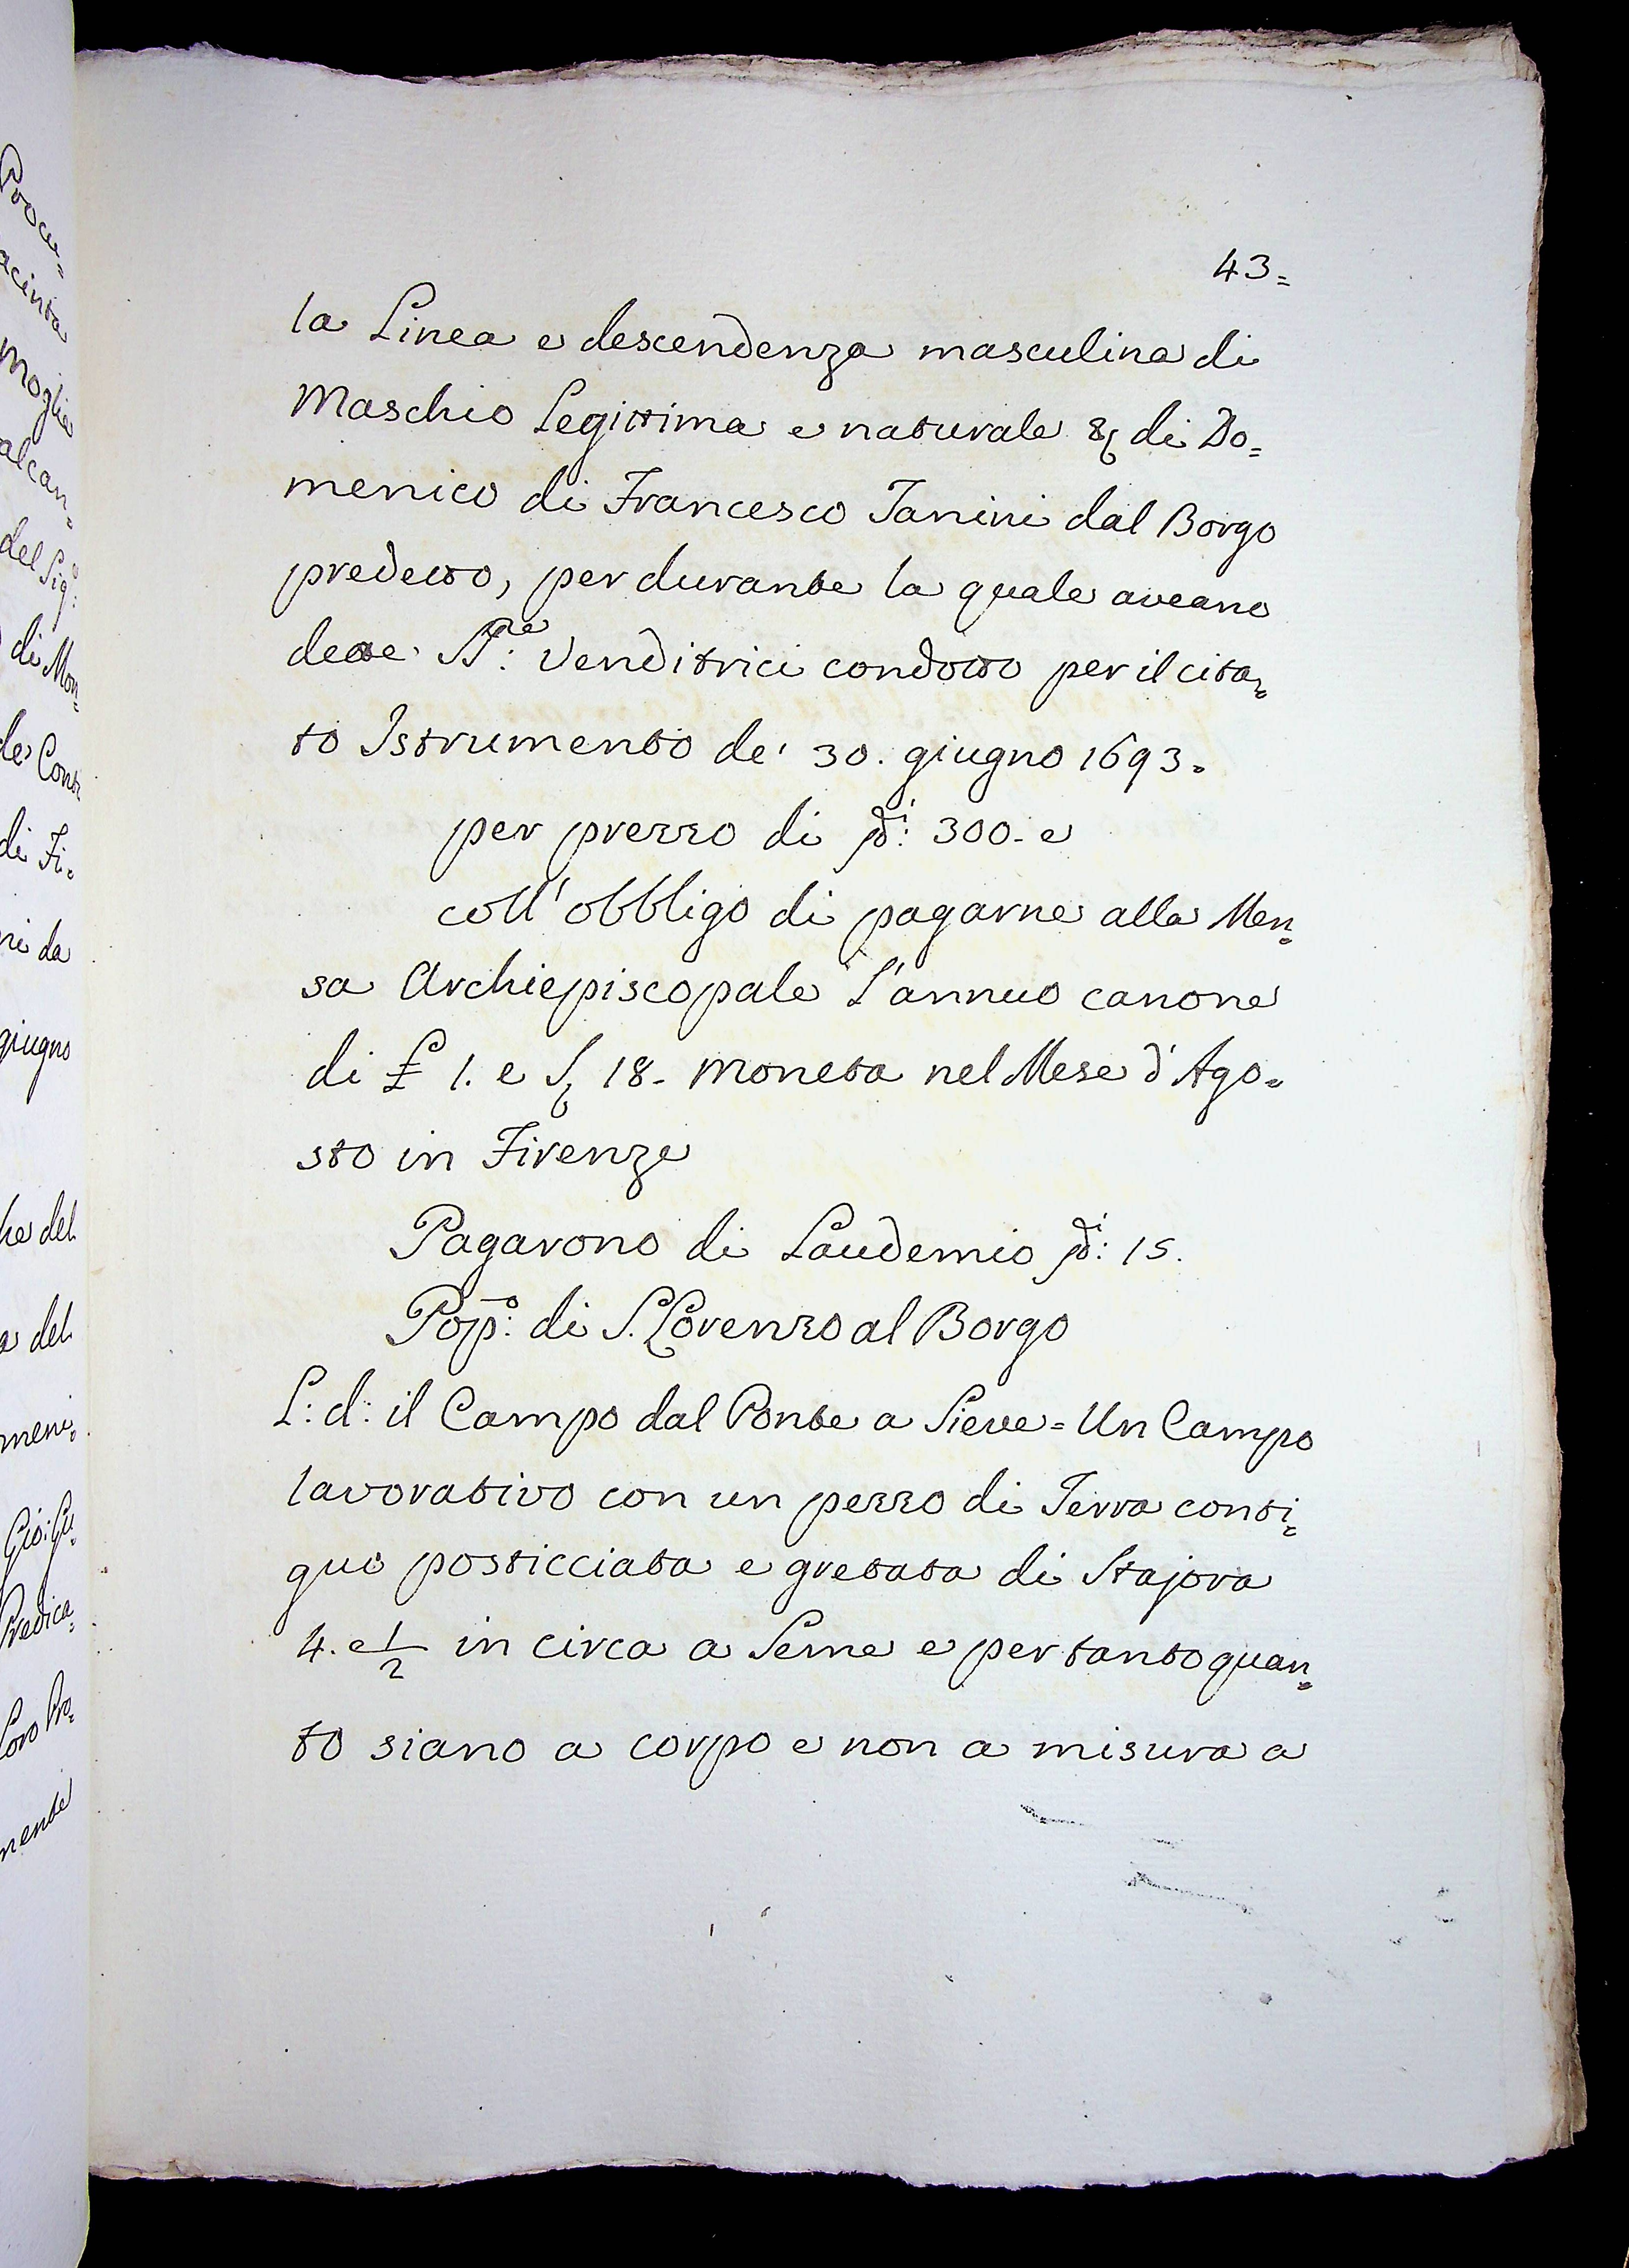 43=
la Linea e descendenza masculina di
Maschio Legittima e naturale &c di Do=
menico di Francesco Tanini dal Borgo
predetto, per durante la quale aveano
dette SS:re Venditrici condotto per il cita=
to Istrumento de' 30. giugno 1693.
per prezzo di 300. e
coll'obbligo di pagarne alla Men=
sa Archiepiscopale L'annuo canone
di £ 1. e S 18. moneta nel Mese d'Ago=
sto in Firenze
Pagarono di Laudemio 15.
Pop:o di S. Lorenzo al Borgo
L: d: il Campo dal Ponte a Sieve = Un Campo
lavorativo con un pezzo di Terra conti=
guo posticciata e gretata di Stajora
4. e 1/2 in circa a Seme e per tanto quan=
to siano a corpo e non a misura a
Procu=
acinta
moglie
alcan=
del Sig:
di Mon=
di Fi=
ni da
giugno
he del
a del
meni=
Predica=
Loro Pro=
mente